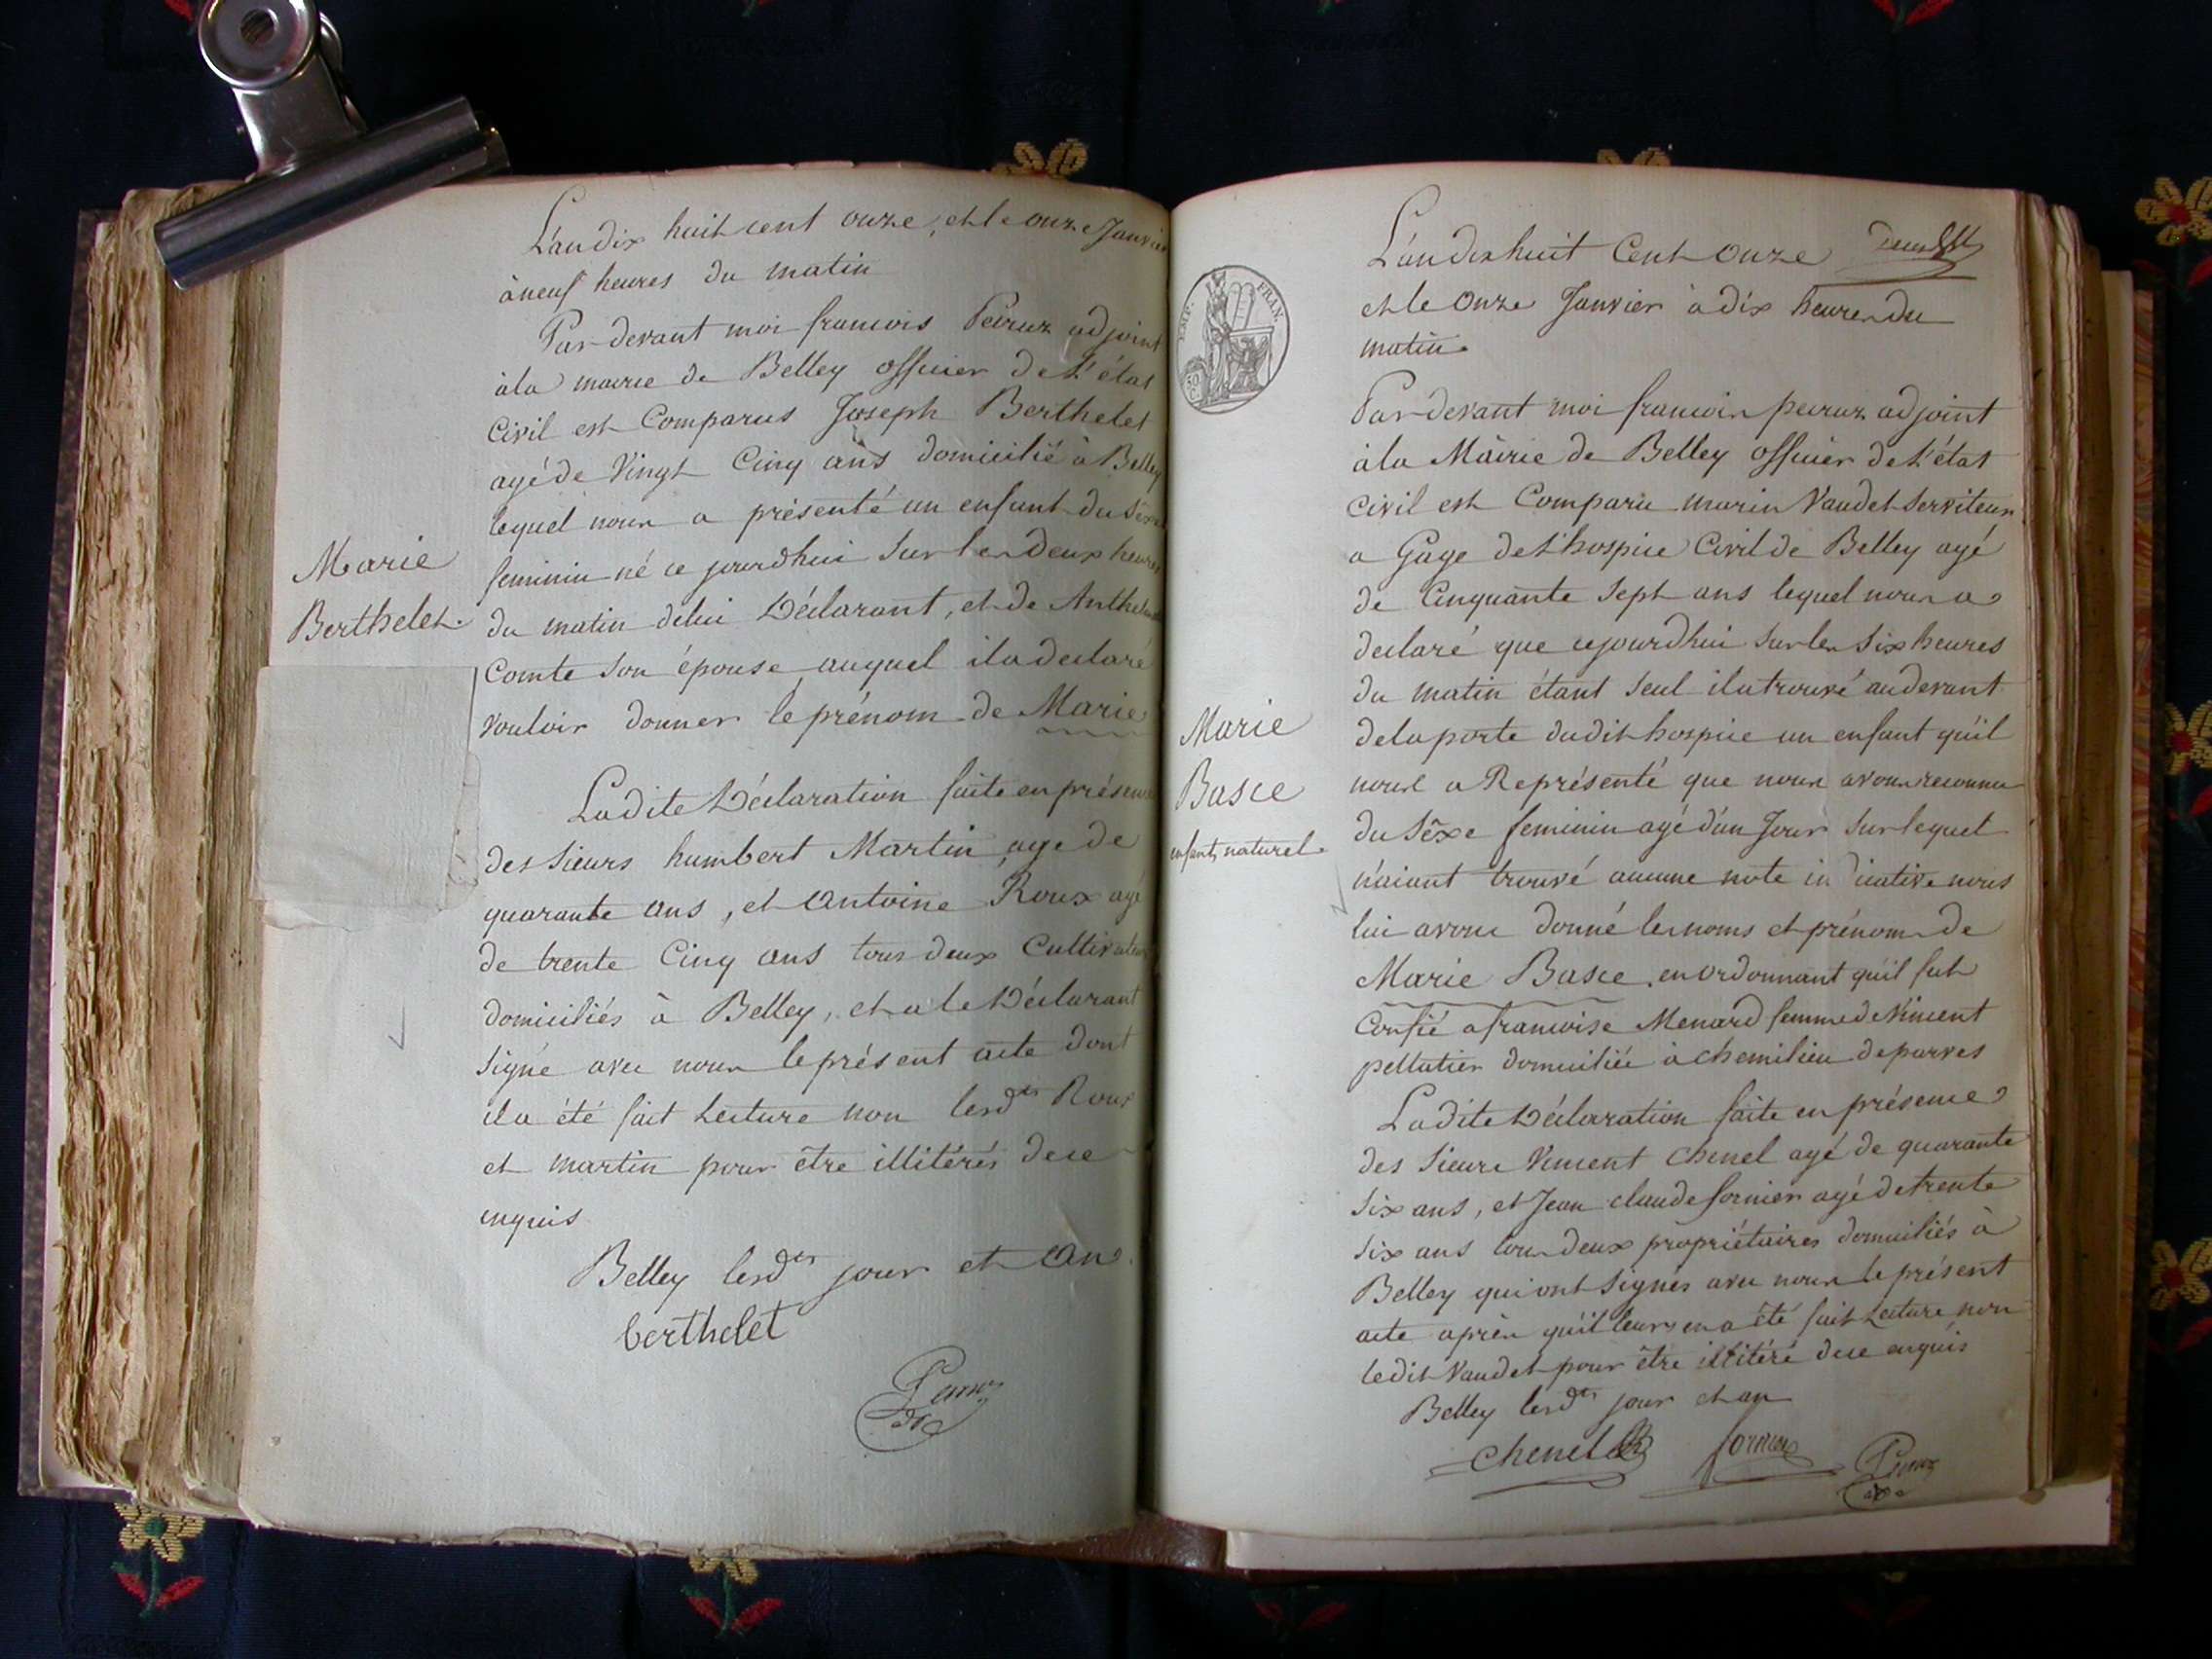 L'an dix huit cent onze, et le onze Janvier
à neuf heures du matin
Par devant moi francois Peiruz adjoint
à la mairie de Belley officier de L'état
Civil est Comparus Joseph Berthelet
agé de Vingt Cinq ans domicilié à Belley
lequel nous a présenté un enfant du Sèxe
feminin né ce jourdhui sur les deux heures
du matin de lui Déclarant, et de Anthelmette
Comte son épouse auquel il a declaré
vouloir donner le prénom de Marie
Marie
Berthelet.
La dite Déclaration faite en présence
des sieurs humbert Martin, age de
quarante ans, et Antoine Roux agé
de trente Cinq ans tous deux Cultivateurs
domiciliés à Belley, et a le Déclarant
signé avec nous le présent acte dont
il a été fait Lecture non lesdts Roux
et martin pour être illitérés de ce
enquis
Belley lesdts jour et an.
berthelet
Peiruz
EMP. FRAN.
50 C
L'an dix huit Cent Onze
et le Onze Janvier à dix heures du
matin.
Par devant moi francois peiruz adjoint
à la Mairie de Belley officier de L'état
Civil est Comparu marin Vaudet Serviteur
a Gage de L'hospice Civil de Belley agé
de Cinquante Sept ans lequel nous a
declaré que cejourdhui sur les six heures
du matin étant seul il a trouvé au devant
de la porte dudit hospice un enfant qu'il
nous a Représenté que nous avons reconnu
du Sèxe feminin agé d'un Jour sur lequel
n'aiant trouvé aucune note indicative nous
lui avons donné les noms et prénoms de
Marie Basce, en ordonnant qu'il fut
Confié a francoise Menard femme de Vincent
pellatier domiciliée à chemilieu de parves
Marie
Basce
enfant naturel.
La dite Déclaration faite en présence
des Sieurs Vincent Chenel agé de quarante
six ans, et Jean claude fornier agé de trente
six ans tous deux propriétaires domiciliés à
Belley qui ont signés avec nous le présent
acte après qu'il leurs en a été fait Lecture, non
ledit Vaudet pour être illitéré de ce enquis
Belley lesdts jour et an
Chenel
fornier
Peiruz